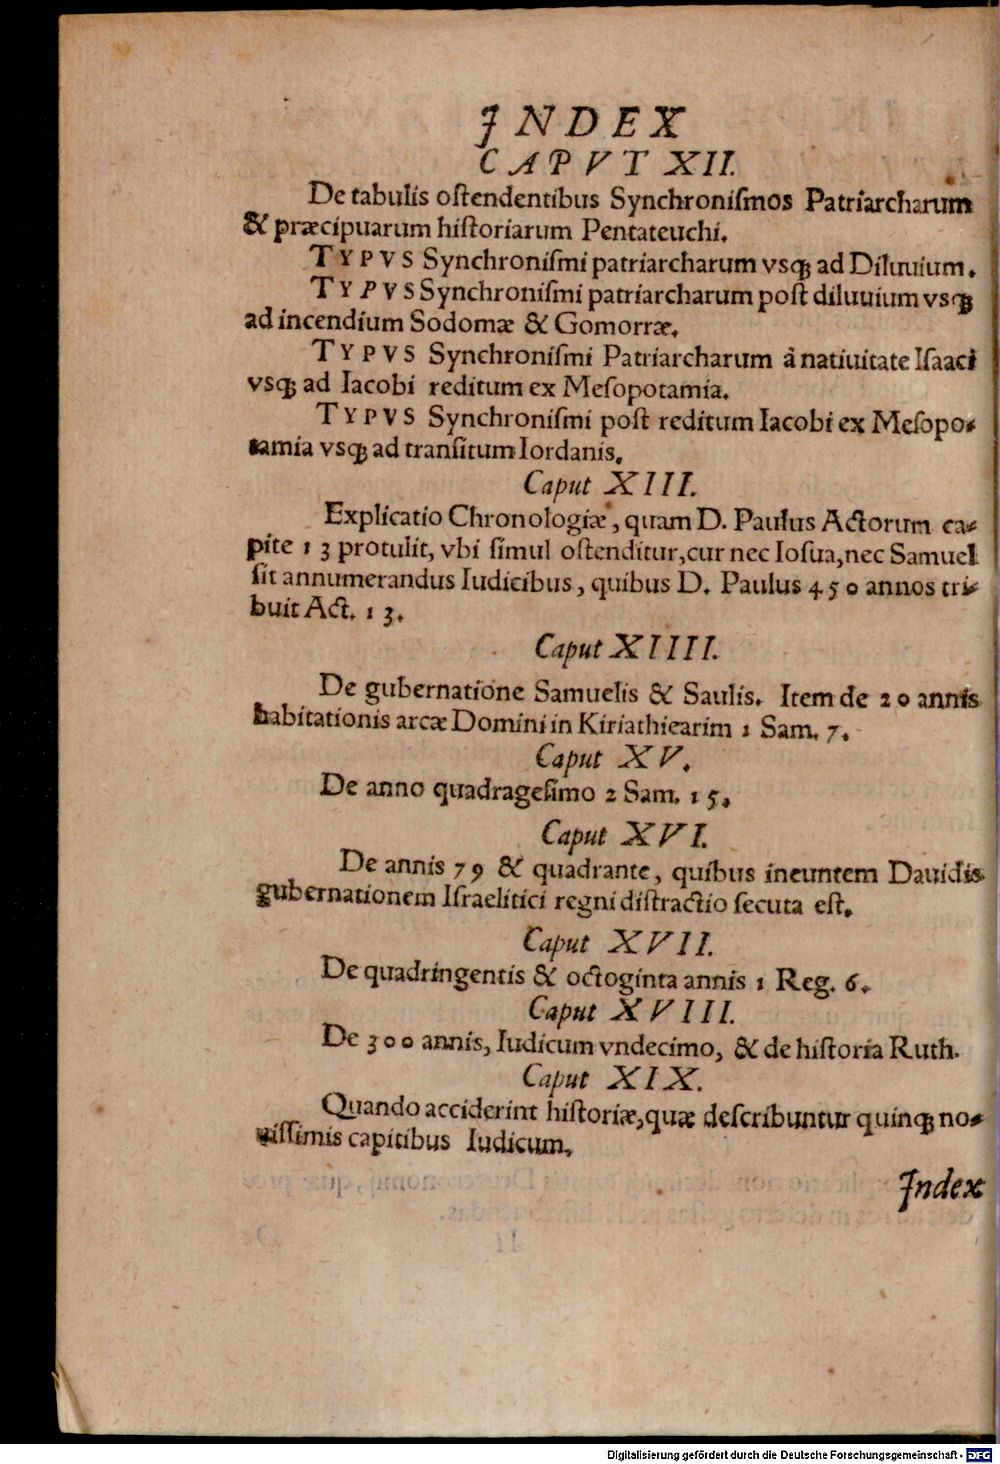 INDEX
CAPVT XII.
De tabulis oſtendentibus Synchroniſmos Patriarcharum
& præcipuarum hiſtoriarum Pentateuchi.
TYPVS Synchroniſmi patriarcharum vsq́; ad Diluuium.
TYPVS Synchroniſmi patriarcharum poſt diluuium vsq́;
ad incendium Sodomæ & Gomorræ.
TYPVS Synchroniſmi Patriarcharum à natiuitate Iſaaci
vsq́; ad Iacobi reditum ex Meſopotamia.
TYPVS Synchroniſmi poſt reditum Iacobi ex Meſopo-
tamia vsq́; ad tranſitum Iordanis.
Caput XIII.
Explicatio Chronologiæ, quam D. Paulus Actorum ca-
pite 13 protulit, vbi ſimul oſtenditur, cur nec Ioſua, nec Samuel
ſit annumerandus Iudicibus, quibus D. Paulus 450 annos tri-
buit Act. 13.
Caput XIIII.
De gubernatione Samuelis & Saulis. Item de 20 annis
habitationis arcæ Domini in Kiriathiearim 1 Sam. 7.
Caput XV.
De anno quadrageſimo 2 Sam. 15.
Caput XVI.
De annis 79 & quadrante, quibus ineuntem Dauidis
gubernationem Iſraelitici regni diſtractio ſecuta eſt.
Caput XVII.
De quadringentis & octoginta annis 1 Reg. 6.
Caput XVIII.
De 300 annis, Iudicum vndecimo, & de hiſtoria Ruth.
Caput XIX.
Quando acciderint hiſtoriæ, quæ deſcribuntur quinq́; no-
uiſſimis capitibus Iudicum.
Index
Digitalisierung gefördert durch die Deutsche Forschungsgemeinschaft - DFG